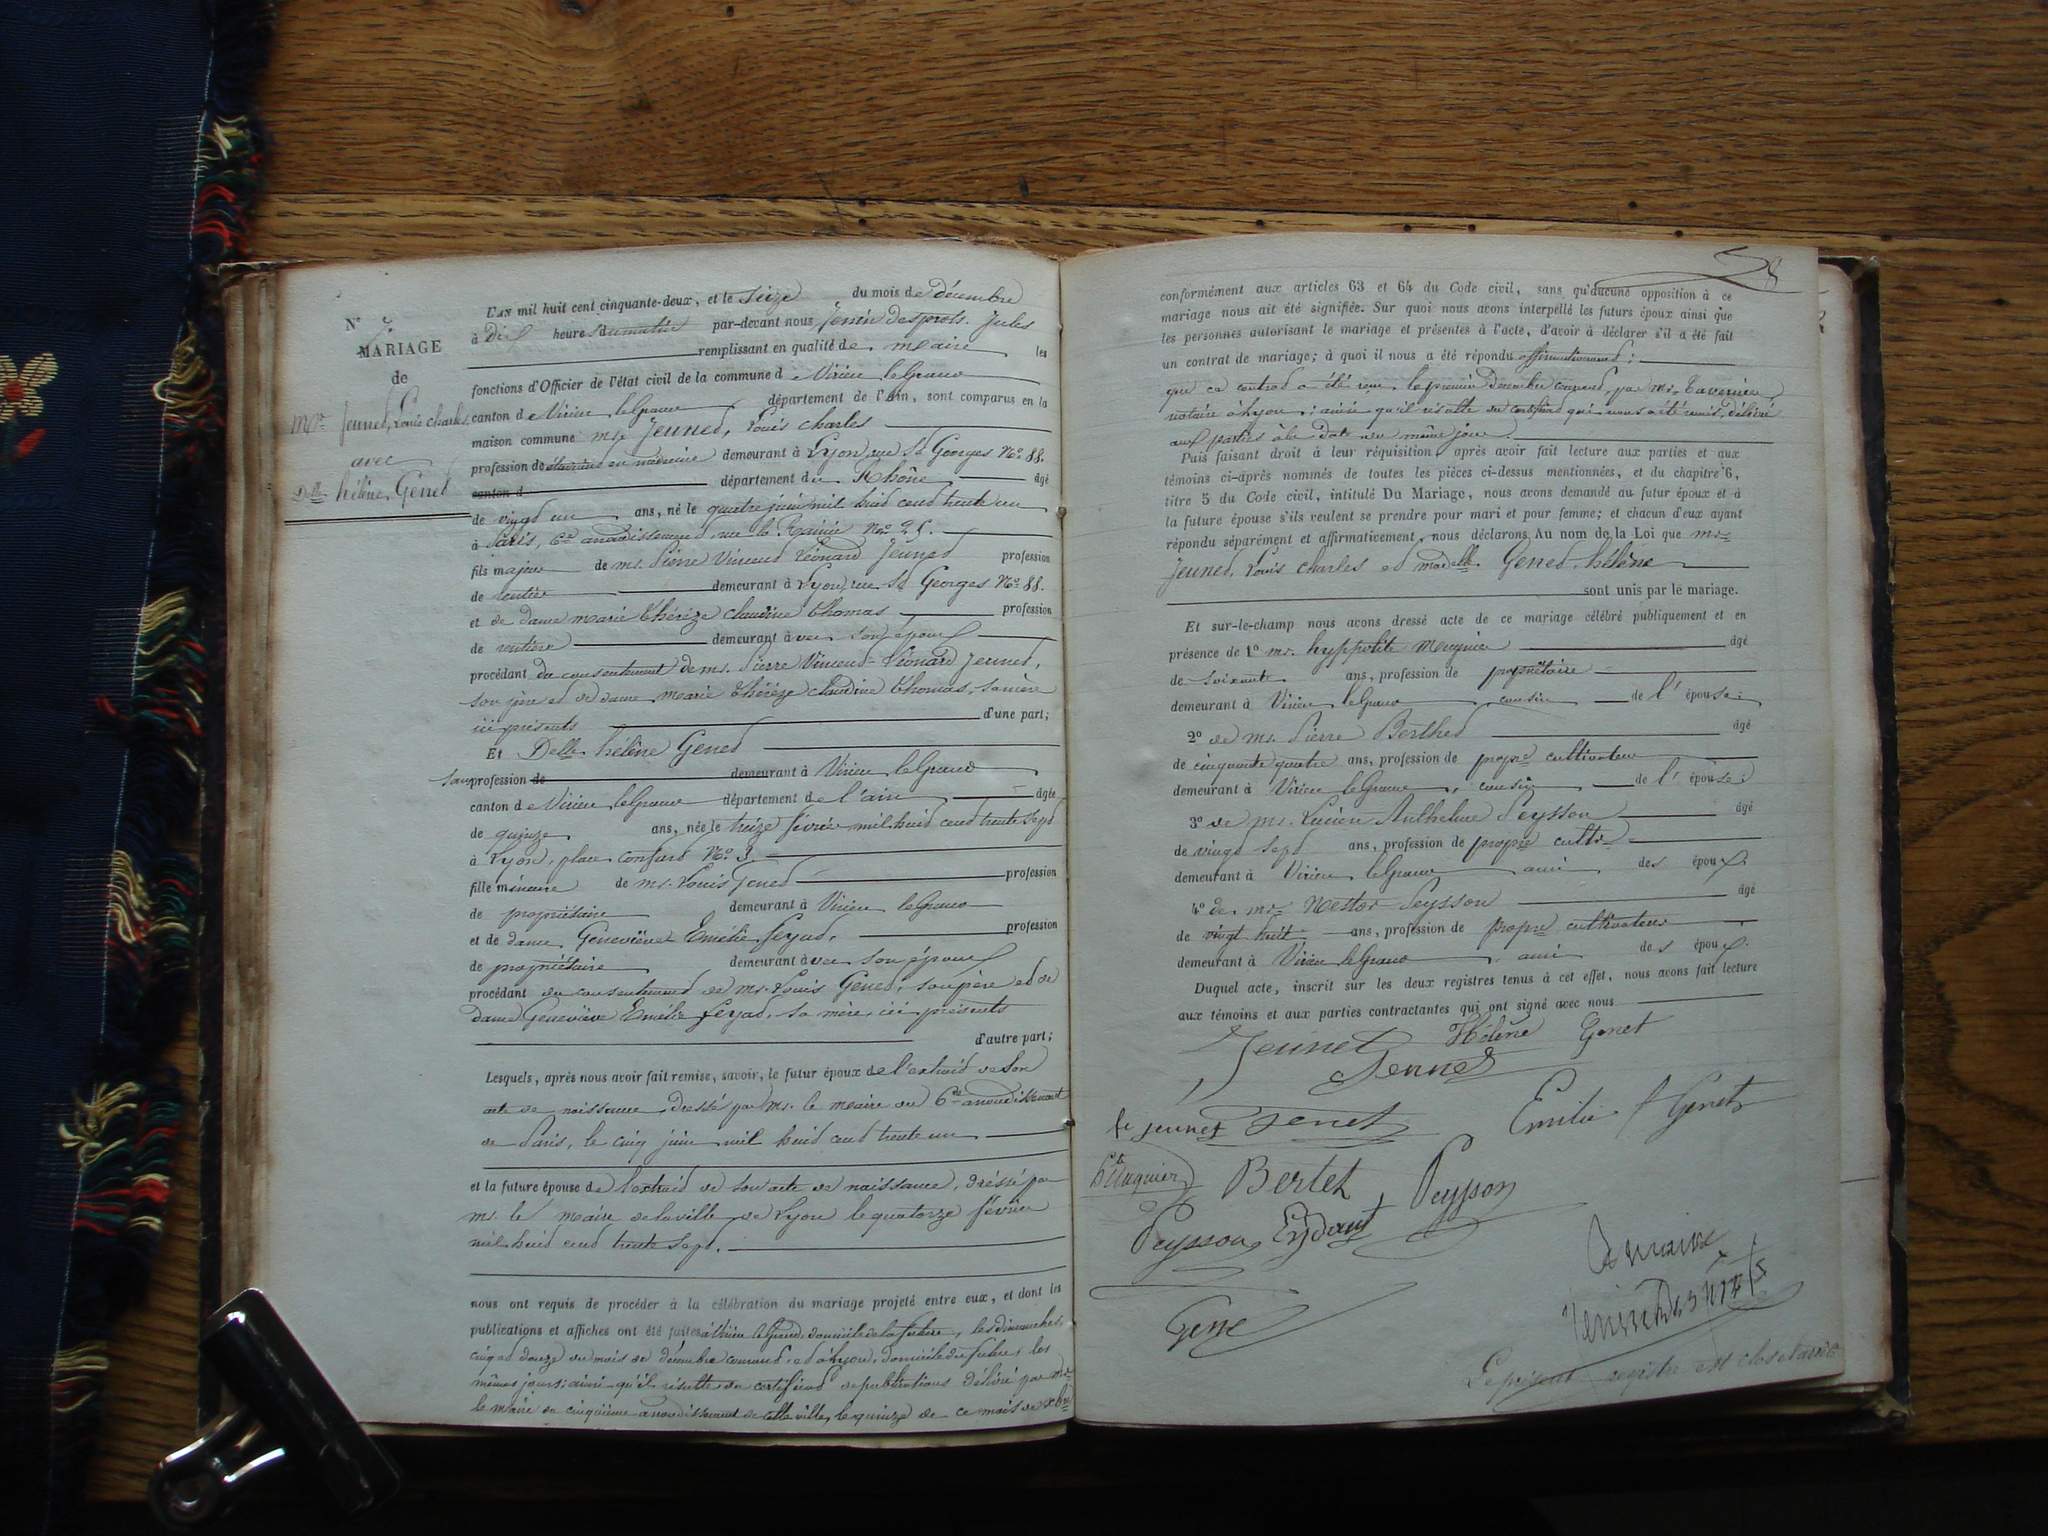 N°
MARIAGE
de
Mr. Jeunet, Louis Charles,
avec
Delle hélène Genet
L'AN mil huit cent cinquante-deux, et le seize du mois de Décembre
à Dix heures du matin par-devant nous Jenin Desprots Jules
remplissant en qualité de maire les
fonctions d'Officier de l'état civil de la commune de Virieu le Grand
canton de Virieu le Grand département de l'Ain, sont comparus en la
maison commune mr. Jeunet, Louis Charles
profession de étudiant en médecine demeurant à Lyon, rue St Georges No. 88.
canton d département du Rhône âgé
de vingt un ans, né le quatre juin mil huit cent trente un
à Paris, 6e arrondissement, rue No. 25.
fils majeur de mr. Pierre Vincent Léonard Jeunet profession
de rentier demeurant à Lyon, rue St Georges No. 88.
et de dame marie thérèze claudine thomas profession
de rentière demeurant avec son époux
procédant du consentement de mr. Pierre Vincent Léonard Jeunet,
son père et de dame marie thérèze claudine thomas, sa mère
ici présents d'une part;
Et Delle hélène Genet
sans profession de demeurant à Virieu le Grand
canton de Virieu le Grand département de l'ain âgée
de quinze ans, née le treize février mil huit cent trente sept
à Lyon, place confort No. 3.
fille mineure de mr. Louis Genet profession
de propriétaire demeurant à Virieu le Grand
et de dame Geneviève Emélie feyat, profession
de propriétaire demeurant avec son époux
procédant du consentement de mr. Louis Genet, son père et de
dame Geneviève Emélie feyat, sa mère, ici présents
d'autre part;
Lesquels, après nous avoir fait remise, savoir, le futur époux de l'extrait de son
acte de naissance, dressé par mr. le maire du 6me arrondissement
de Paris, le cinq juin mil huit cent trente un
et la future épouse de l'extrait de son acte de naissance, dressé par
mr. le maire de la ville de Lyon le quatorze février
mil huit cent trente sept.
nous ont requis de procéder à la célébration du mariage projeté entre eux, et dont les
publications et affiches ont été faites à Virieu le Grand, domicile de la future, les dimanches,
cinq et douze du mois de décembre courant, et à Lyon, domicile du futur, les
mêmes jours; ainsi qu'il résulte du certificat de publications délivré par mr
le maire du cinquième arrondissement de cette ville, le quinze de ce mois de xbre
8
conformément aux articles 63 et 64 du Code civil, sans qu'aucune opposition à ce
mariage nous ait été signifiée. Sur quoi nous avons interpellé les futurs époux ainsi que
les personnes autorisant le mariage et présentes à l'acte, d'avoir à déclarer s'il a été fait
un contrat de mariage; à quoi il nous a été répondu affirmativement:
que ce contrat a été reçu le premier Décembre courant, par Mr. Tavernier,
notaire à Lyon; ainsi qu'il résulte du certificat qui nous a été remis, délivré
aux parties à la date du même jour.
Puis faisant droit à leur réquisition, après avoir fait lecture aux parties et aux
témoins ci-après nommés de toutes les pièces ci-dessus mentionnées, et du chapitre 6,
titre 5 du Code civil, intitulé Du Mariage, nous avons demandé au futur époux et à
la future épouse s'ils veulent se prendre pour mari et pour femme; et chacun d'eux ayant
répondu séparément et affirmativement, nous déclarons Au nom de la Loi que mr
Jeunet, Louis Charles et madelle Genet hélène
sont unis par le mariage.
Et sur-le-champ nous avons dressé acte de ce mariage célébré publiquement et en
présence de 1° mr. hyppolite âgé
de soixante ans, profession de propriétaire
demeurant à Virieu le Grand, cousin de l'épouse;
2° de mr. Pierre Berthet âgé
de cinquante quatre ans, profession de propre cultivateur
demeurant à Virieu le Grand, cousin de l'épouse;
3° de mr. Lucien Anthelme Peysson âgé
de vingt sept ans, profession de propre cultr
demeurant à Virieu le Grand ami des époux;
4° de mr Nestor Peysson âgé
de vingt huit ans, profession de propre cultivateur
demeurant à Virieu le Grand, ami des époux;
Duquel acte, inscrit sur les deux registres tenus à cet effet, nous avons fait lecture
aux témoins et aux parties contractantes qui ont signé avec nous
Jeunet Hélène Genet
Jeunet
Jeunet Genet Emilie f Genet
Bertet Peysson
Peysson Eydant
Gene
Le maire
Le présent registre est clos et arrêté